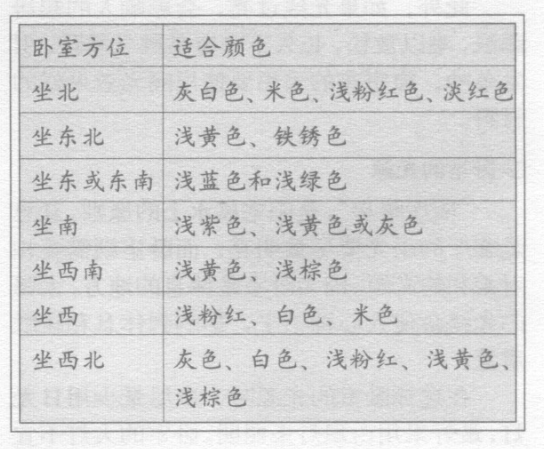 卧室方位 适合颜色
坐北 灰白色、米色、浅粉红色、淡红色
坐东北 浅黄色、铁锈色
坐东或东南 浅蓝色和浅绿色
坐南 浅紫色、浅黄色或灰色
坐西南 浅黄色、浅棕色
坐西 浅粉红、白色、米色
坐西北 灰色、白色、浅粉红、浅黄色、
浅棕色